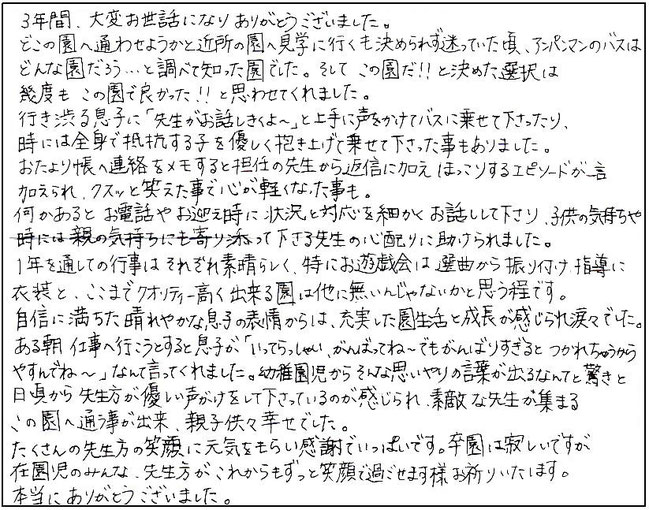 3年間、大変お世話になりありがとうございました。
どこの園へ通わせようかと近所の園へ見学に行くも決められず迷っていた頃、アンパンマンのバスは
どんな園だろう…と調べて知った園でした。そして この園だ!!と決めた選択は
幾度も この園で良かった!!と思わせてくれました。
行き渋る息子に「先生がお話しきくよ〜」と上手に声をかけてバスに乗せて下さったり、
時には全身で抵抗する子を優しく抱き上げて乗せて下さった事もありました。
おたより帳へ連絡をメモすると担任の先生から返信に加え ほっこりするエピソードが一言
加えられ、クスッと笑えた事で心が軽くなった事も。
何かあると お電話や お迎え時に 状況と対応を細かく お話しして下さり、子供の気持ちや
時には親の気持ちにも寄り添って下さる先生の心配りに助けられました。
1年を通しての行事は それぞれ素晴らしく、特にお遊戯会は 選曲から振り付け、指導に
衣装と、ここまでクオリティー高く出来る園は他に無いんじゃないかと思う程です。
自信に満ちた晴れやかな息子の表情からは、充実した園生活と成長が感じられ涙々でした。
ある朝 仕事へ行こうとすると息子が「いってらっしゃい、がんばってね〜でもがんばりすぎると つかれちゃうから
やすんでね〜」なんて言ってくれました。幼稚園児からそんな思いやりの言葉が出るなんてと驚きと
日頃から先生方が優しい声がけをして下さっているのが感じられ、素敵な先生が集まる
この園へ通う事が出来、親子供々幸せでした。
たくさんの先生方の笑顔に元気をもらい感謝でいっぱいです。卒園は寂しいですが
在園児のみんな、先生方が これからもずっと笑顔で過ごせます様お祈りいたします。
本当にありがとうございました。